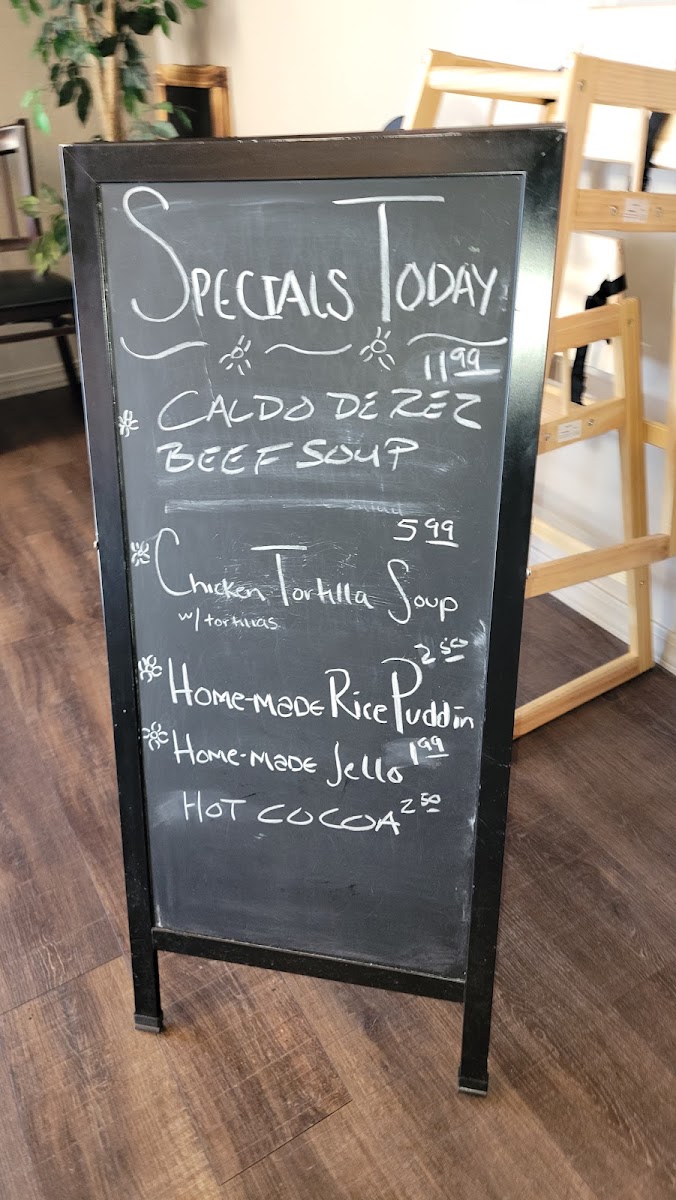 SPECIALS TODAY
11.99
CALDO DE REZ
BEEF SOUP
5.99
Chicken Tortilla Soup
w/ tortillas
2.50
HOME-MADE Rice Puddin
HOME-MADE Jello 1.99
HOT COCOA 2.50